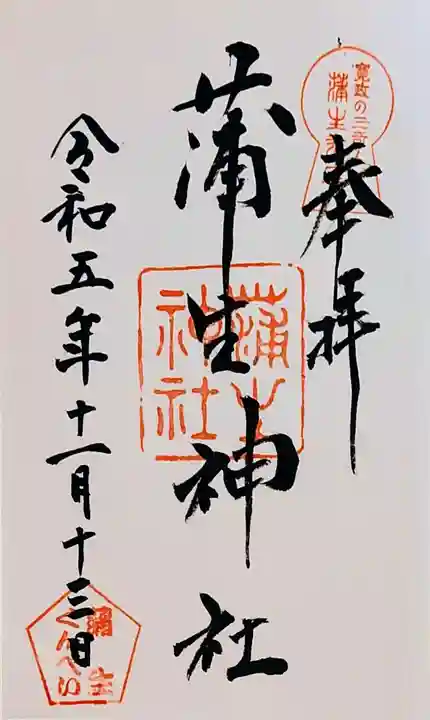 奉拝
寛政の三奇
蒲生
蒲生神社
蒲生神社
令和五年十一月十三日
蒲生
くんぺい